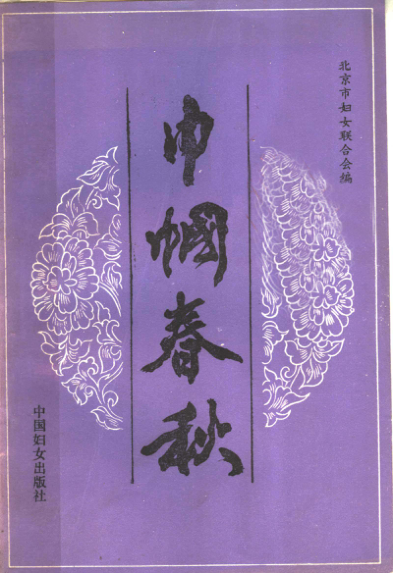 北京市妇女联合会编
巾帼春秋
中国妇女出版社